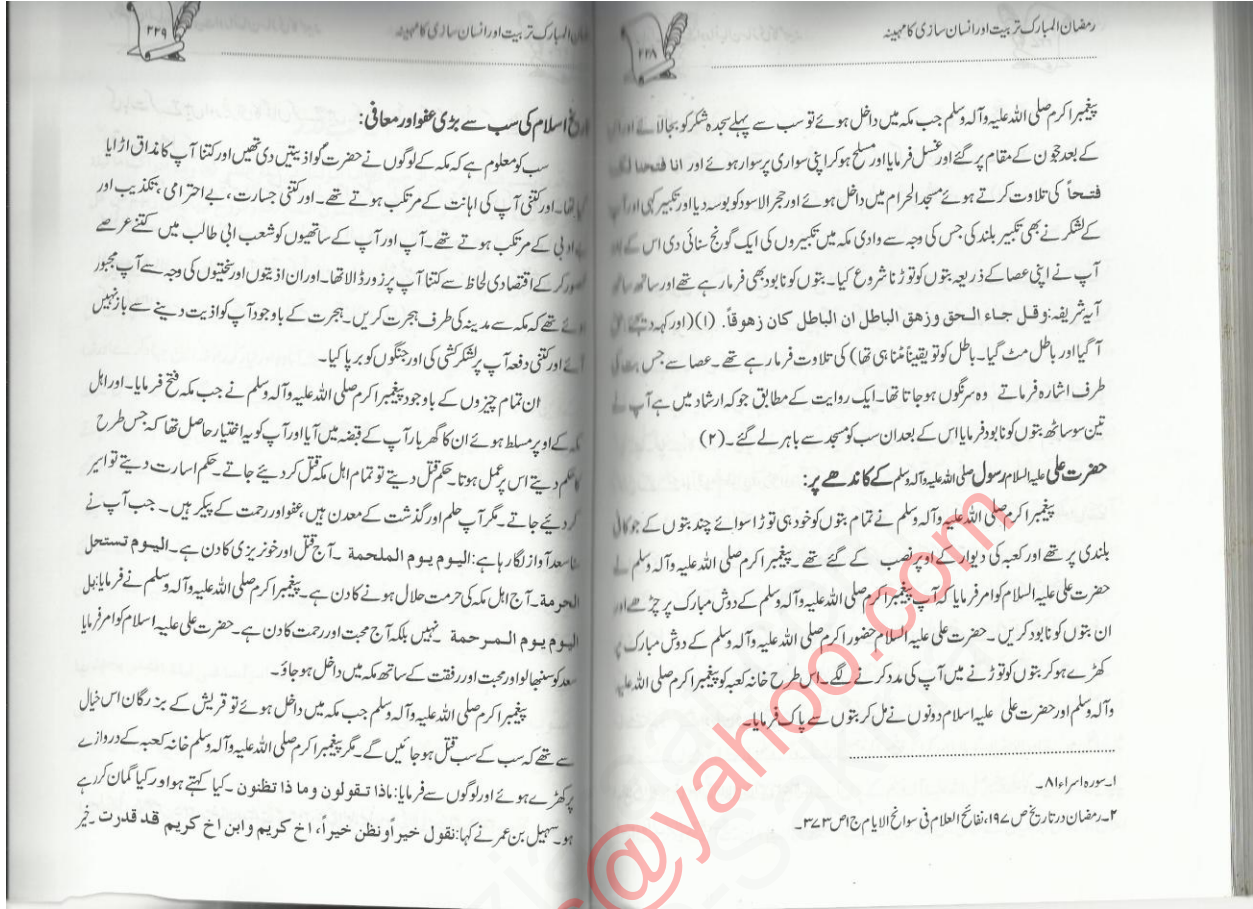 رمضان المبارک تربیت اور انسان سازی کا مہینہ
۲۲۸
پیغمبر اکرم صلی اللہ علیہ وآلہ وسلم جب مکہ میں داخل ہوئے تو سب سے پہلے سجدہ شکر کو بجا لائے اور
کے بعد حجون کے مقام پر گئے اور غسل فرمایا اور مسلح ہو کر اپنی سواری پر سوار ہوئے اور انا فتحنا لک
فتحاً کی تلاوت کرتے ہوئے مسجد الحرام میں داخل ہوئے اور حجر الاسود کو بوسہ دیا اور تکبیر کہی اور آپ
کے لشکر نے بھی تکبیر بلند کی جس کی وجہ سے وادی مکہ میں تکبیروں کی ایک گونج سنائی دی اس کے بعد
آپ نے اپنی عصا کے ذریعہ بتوں کو توڑنا شروع کیا۔ بتوں کو نابود بھی فرما رہے تھے اور ساتھ ساتھ
آیہ شریفہ: وقل جاء الحق وزهق الباطل ان الباطل کان زهوقاً. (۱) (اور کہہ دیجئے: حق
آ گیا اور باطل مٹ گیا۔ باطل کو تو یقیناً مٹنا ہی تھا) کی تلاوت فرما رہے تھے۔ عصا سے جس بت کی
طرف اشارہ فرماتے وہ سرنگوں ہو جاتا تھا۔ ایک روایت کے مطابق جو کہ ارشاد میں ہے آپ نے
تین سو ساٹھ بتوں کو نابود فرمایا اس کے بعد ان سب کو مسجد سے باہر لے گئے۔ (۲)
حضرت علی علیہ السلام رسول صلی اللہ علیہ وآلہ وسلم کے کاندھے پر:
پیغمبر اکرم صلی اللہ علیہ وآلہ وسلم نے تمام بتوں کو خود ہی توڑا سوائے چند بتوں کے جو کافی
بلندی پر تھے اور کعبہ کی دیوار کے اوپر نصب کے گئے تھے۔ پیغمبر اکرم صلی اللہ علیہ وآلہ وسلم نے
حضرت علی علیہ السلام کو امر فرمایا کہ آپ پیغمبر اکرم صلی اللہ علیہ وآلہ وسلم کے دوش مبارک پر چڑھے اور
ان بتوں کو نابود کریں۔ حضرت علی علیہ السلام حضور اکرم صلی اللہ علیہ وآلہ وسلم کے دوش مبارک پر
کھڑے ہو کر بتوں کو توڑنے میں آپ کی مدد کرنے لگے۔ اس طرح خانہ کعبہ کو پیغمبر اکرم صلی اللہ علیہ
وآلہ وسلم اور حضرت علی علیہ اسلام دونوں نے مل کر بتوں سے پاک فرمایا۔
۱۔ سورہ اسراء ۸۱۔
۲۔ رمضان در تاریخ ص ۱۹۷، نفائح العلام فی سوانح الایام ج ۱ ص ۳۷۳۔
المبارک تربیت اور انسان سازی کا مہینہ
۲۲۹
تاریخ اسلام کی سب سے بڑی عفو اور معافی:
سب کو معلوم ہے کہ مکہ کے لوگوں نے حضرت گواذیتیں دی تھیں اور کتنا آپ کا مذاق اڑایا
گیا تھا۔ اور کتنی آپ کی اہانت کے مرتکب ہوتے تھے۔ اور کتنی جسارت، بے احترامی، تکذیب اور
بے ادبی کے مرتکب ہوتے تھے۔ آپ اور آپ کے ساتھیوں کو شعب ابی طالب میں کتنے عرصے
محصور کر کے اقتصادی لحاظ سے کتنا آپ پر زور ڈالا تھا۔ اور ان اذیتوں اور سختیوں کی وجہ سے آپ مجبور
ہوئے تھے کہ مکہ سے مدینہ کی طرف ہجرت کریں۔ ہجرت کے باوجود آپ کو اذیت دینے سے باز نہیں
آئے اور کتنی دفعہ آپ پر لشکر کشی کی اور جنگوں کو برپا کیا۔
ان تمام چیزوں کے باوجود پیغمبر اکرم صلی اللہ علیہ وآلہ وسلم نے جب مکہ فتح فرمایا۔ اور اہل
مکہ کے اوپر مسلط ہوئے ان کا گھر بار آپ کے قبضہ میں آیا اور آپ کو یہ اختیار حاصل تھا کہ: جس طرح
کا حکم دیتے اس پر عمل ہوتا۔ حکم قتل دیتے تو تمام اہل مکہ قتل کر دئیے جاتے۔ حکم اسارت دیتے تو اسیر
کر دئیے جاتے۔ مگر آپ حلم اور گذشت کے معدن ہیں، عفو اور رحمت کے پیکر ہیں۔ جب آپ نے
سنا سعد آواز لگا رہا ہے: الیوم یوم الملحمة۔ آج قتل اور خونریزی کا دن ہے۔ الیوم تستحل
الحرمة۔ آج اہل مکہ کی حرمت حلال ہونے کا دن ہے۔ پیغمبر اکرم صلی اللہ علیہ وآلہ وسلم نے فرمایا: بل
الیوم یوم المرحمة۔ نہیں بلکہ آج محبت اور رحمت کا دن ہے۔ حضرت علی علیہ اسلام کو امر فرمایا
سعد کو سنبھالو اور محبت اور رفقت کے ساتھ مکہ میں داخل ہو جاؤ۔
پیغمبر اکرم صلی اللہ علیہ وآلہ وسلم جب مکہ میں داخل ہوئے تو قریش کے بزرگان اس خیال
سے تھے کہ سب کے سب قتل ہو جائیں گے۔ مگر پیغمبر اکرم صلی اللہ علیہ وآلہ وسلم خانہ کعبہ کے دروازے
پر کھڑے ہوئے اور لوگوں سے فرمایا: ماذا تقولون وما ذا تظنون۔ کیا کہتے ہو اور کیا گمان کر رہے
ہو۔ سہیل بن عمر نے کہا: نقول خیراً و نظن خیراً، اخ کریم وابن اخ کریم قد قدرت۔ خیر
@yahoo.com